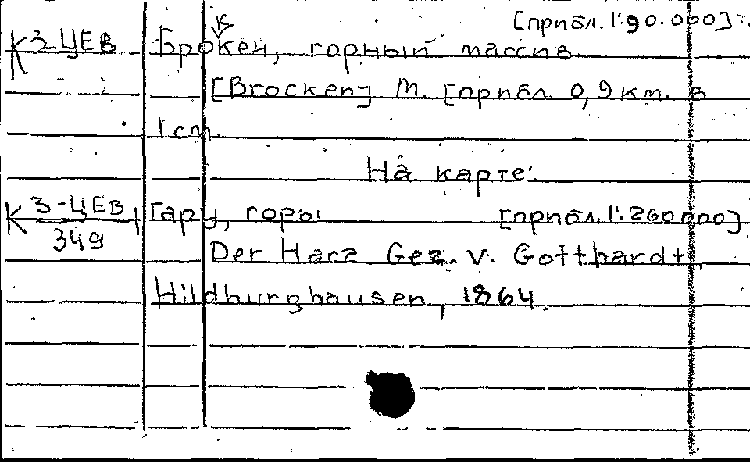 [прибл. 1:90.000].
К З-ЦЕВ Брокен, горный массив.
[Brocken] М. [прибл. 0,9 км. в
1 см.
На карте:
К З-ЦЕВ 349 Гарц, горы [прибл. 1:260000]
Der Harz Gez. v. Gotthardt,
Hildburghausen, 1864.